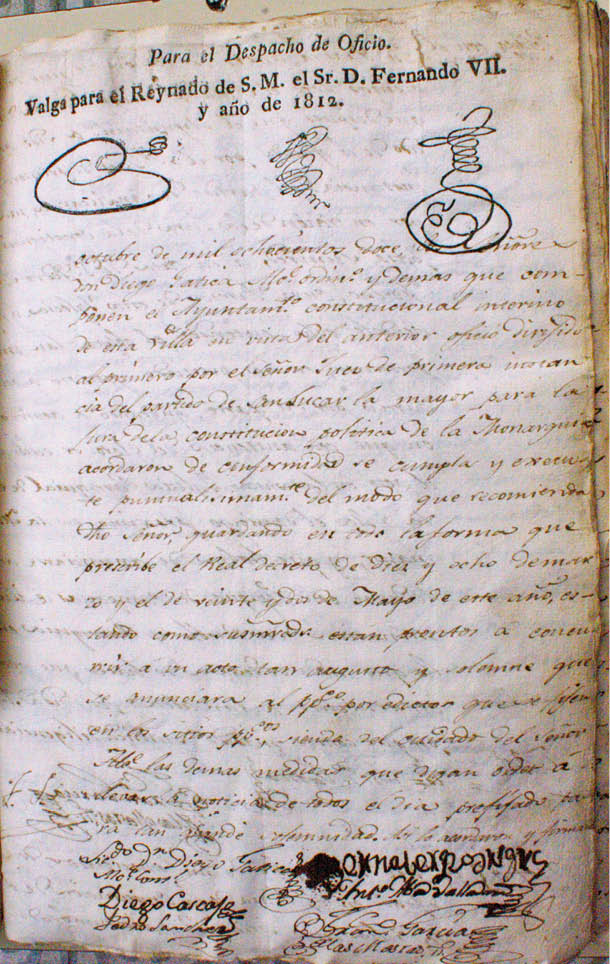 Para el Despacho de Oficio.
Valga para el Reynado de S. M. el Sr. D. Fernando VII.
y año de 1812.
octubre de mil ochocientos doce los Señores
don Diego Gatica Alc.e ordin.o y demas que com-
ponen el Ayuntam.to constitucional interino
de esta villa en vista del anterior oficio dirijido
al primero por el Señor Juez de primera instan
cia del partido de Sanlucar la mayor para la
Jura dela constitucion politica de la Monarquia
acordaron de conformidad se cumpla y execu-
te puntualisimam.te del modo que recomienda
dho Señor guardando en todo la forma que
prescribe el Real decreto de diez y ocho demar
zo y el de veinte ydos de Mayo de este año, es-
tando como susmrds. estan prontos á concu-
rrir a un acto tan augusto y solemne que
se anunciara al pp.co por edictos que se fijen
en los sitios pp.cos, siendo del cuidado del Señor
Alc.e las demas medidas que digan orden á
llevar la noticia de todos el dia prefijado pa
ra tan grande solemnidad. Asi lo acordaron y firman
D.n Diego Gatica
Diego Cascajo
Pedro Sanchez
Fran.co Garcia
Blas